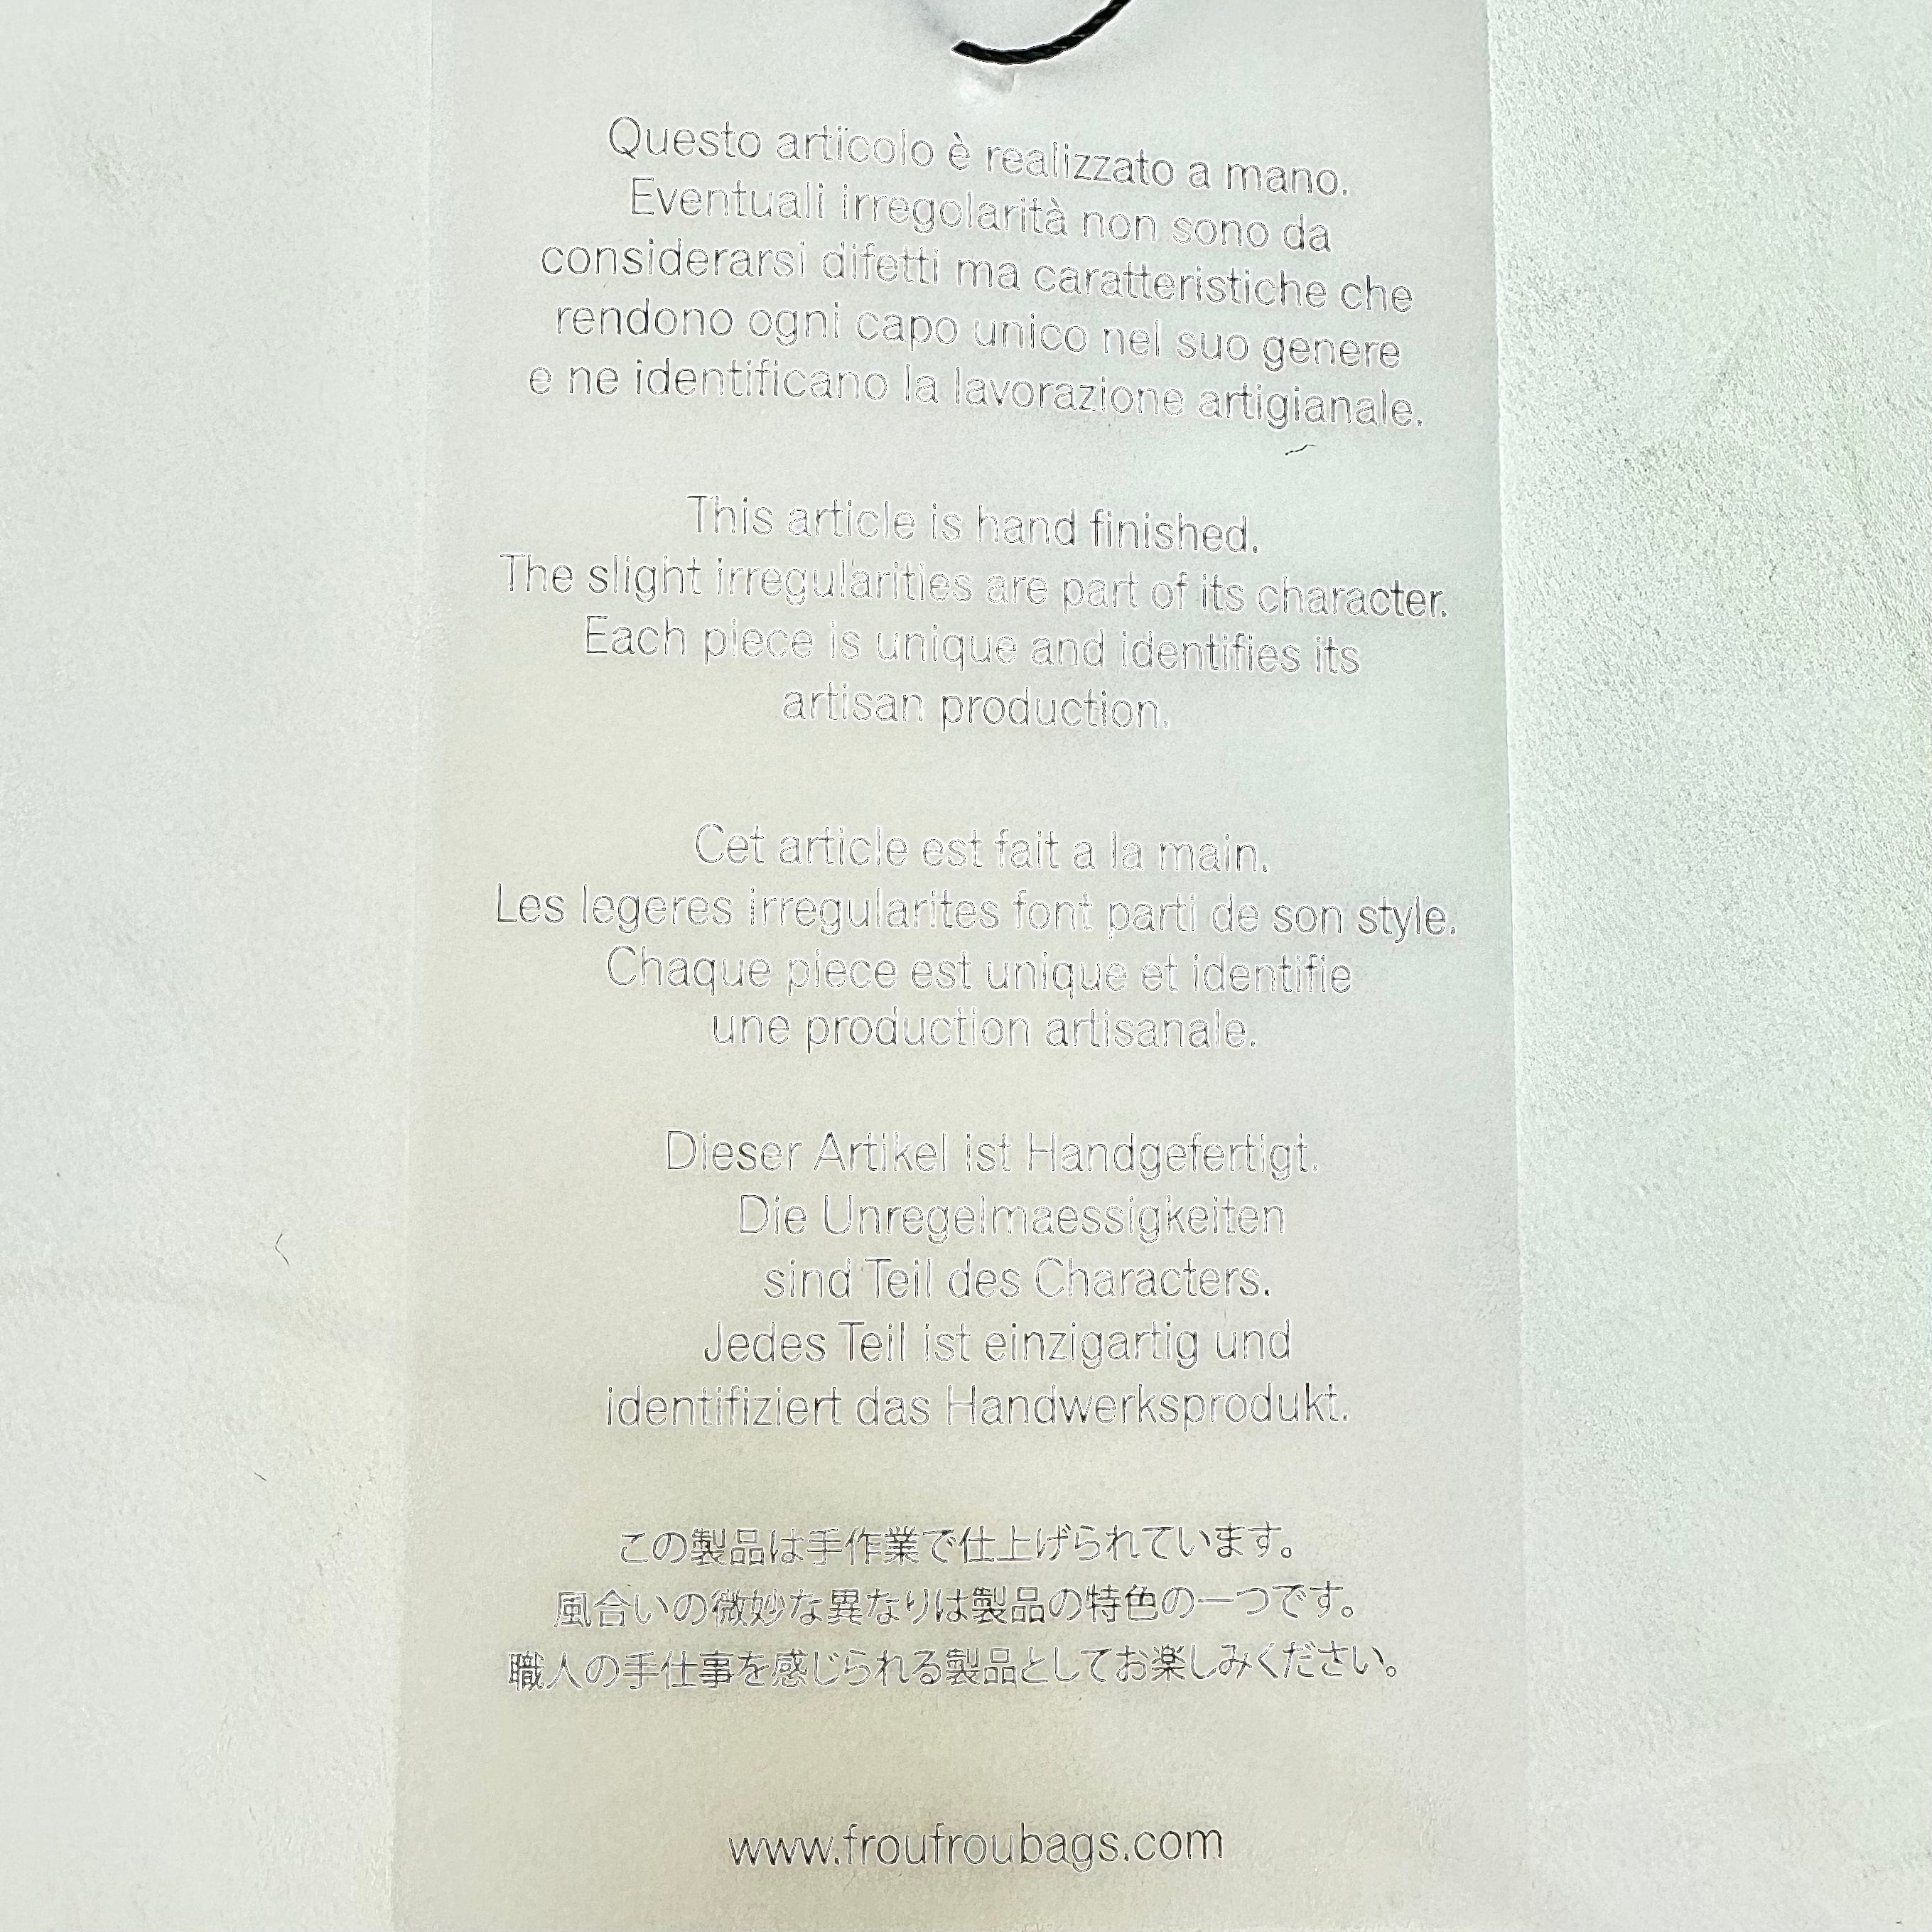 Questo articolo è realizzato a mano.
Eventuali irregolarità non sono da
considerarsi difetti ma caratteristiche che
rendono ogni capo unico nel suo genere
e ne identificano la lavorazione artigianale.
This article is hand finished.
The slight irregularities are part of its character.
Each piece is unique and identifies its
artisan production.
Cet article est fait a la main.
Les legeres irregularites font parti de son style.
Chaque piece est unique et identifie
une production artisanale.
Dieser Artikel ist Handgefertigt.
Die Unregelmaessigkeiten
sind Teil des Characters.
Jedes Teil ist einzigartig und
identifiziert das Handwerksprodukt.
この製品は手作業で仕上げられています。
風合いの微妙な異なりは製品の特色の一つです。
職人の手仕事を感じられる製品としてお楽しみください。
www.froufroubags.com